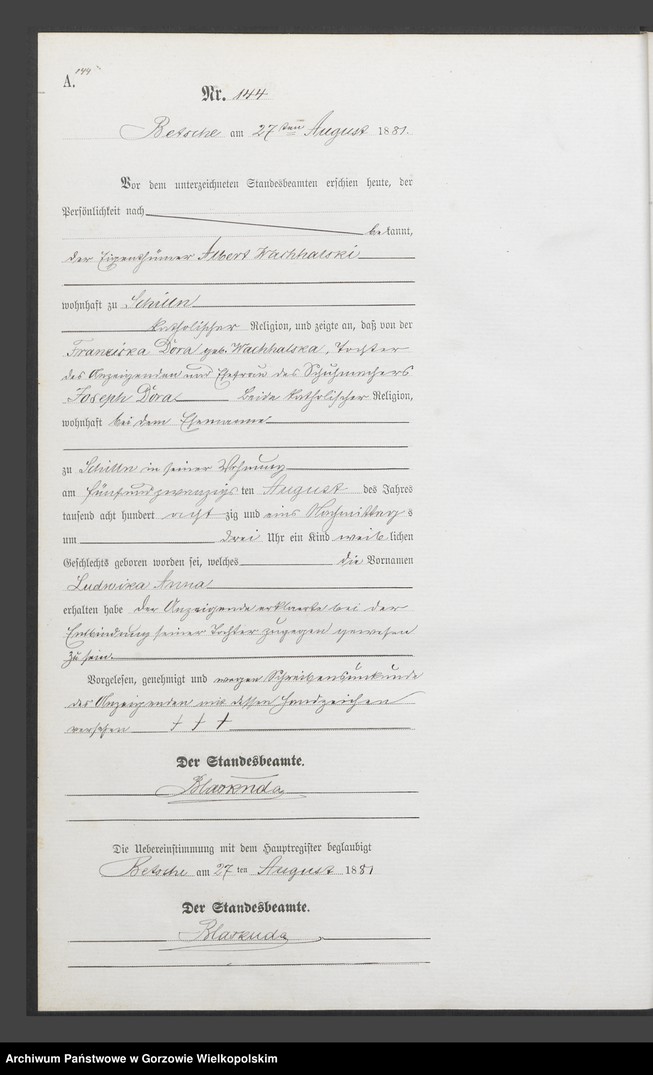 A.
144
Nr. 144
Betsche am 27ten August 1881.
Vor dem unterzeichneten Standesbeamten erschien heute, der
Persönlichkeit nach
bekannt,
der Eigenthümer Albert Wachhalski
wohnhaft zu Schilln
katholischer Religion, und zeigte an, daß von der
Franciska Dora geb. Wachhalska, Tochter
des Anzeigenden und Ehefrau des Schuhmachers
Joseph Dora beide katholischer Religion,
wohnhaft bei dem Ehemanne
zu Schilln in seiner Wohnung
am fünfundzwanzigsten August des Jahres
tausend acht hundert achtzig und eins Nachmittags
um drei Uhr ein Kind weiblichen
Geschlechts geboren worden sei, welches die Vornamen
Ludwika Anna
erhalten habe der Anzeigende erklaerte bei der
Entbindung seiner Tochter zugegen gewesen
zu sein.
Vorgelesen, genehmigt und wegen Schreibensunkunde
des Anzeigenden mit dessen Handzeichen
versehen + + +
Der Standesbeamte.
Die Uebereinstimmung mit dem Hauptregister beglaubigt
Betsche am 27ten August 1881
Der Standesbeamte.
Archiwum Państwowe w Gorzowie Wielkopolskim